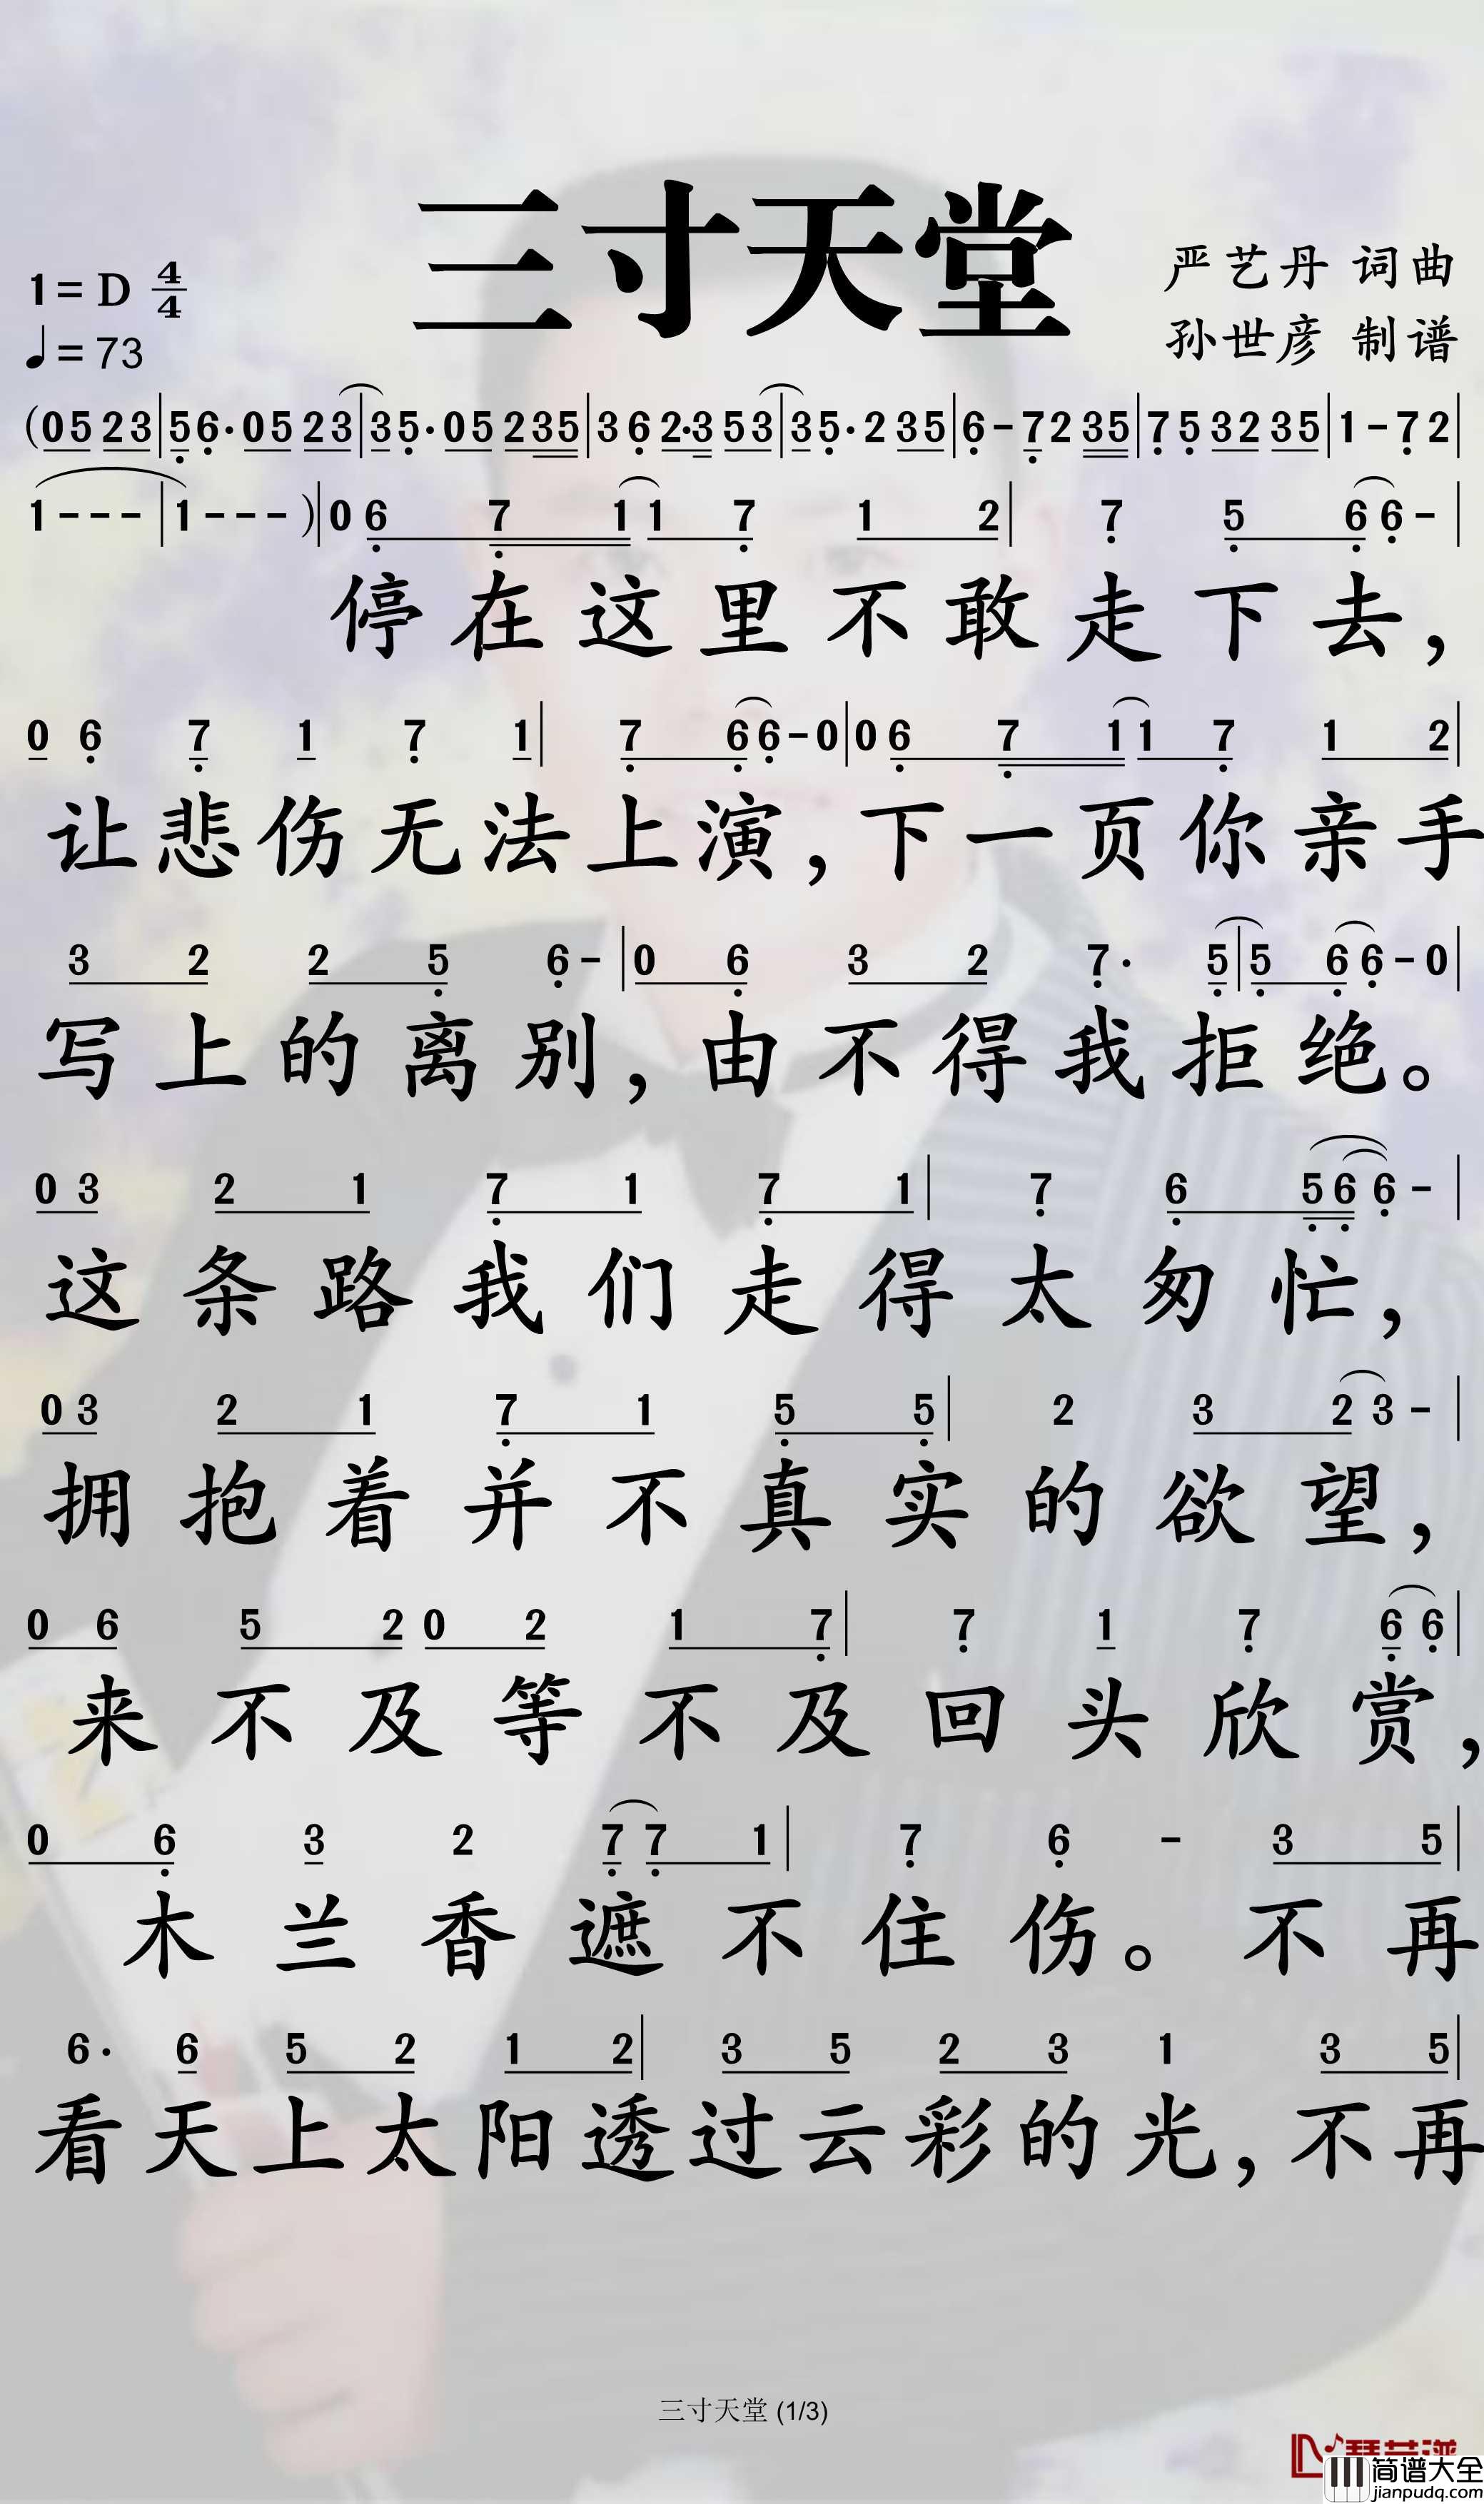 三寸天堂
1=D 4/4
♩=73
严艺丹 词曲
孙世彦 制谱
(05 23|56·05 23|35·05 235|36 2·3 53|35·2 35|6-72 35|75 32 35|1-72|
1---|1---)|0 6 7 1 1 7 1 2|7 5 6 6-|
停在这里不敢走下去，
0 6 7 1 7 1|7 6 6-0|0 6 7 1 1 7 1 2|
让悲伤无法上演，下一页你亲手
3 2 2 5 6-|0 6 3 2 7· 5|5 6 6-0|
写上的离别，由不得我拒绝。
0 3 2 1 7 1 7 1|7 6 5 6 6-|
这条路我们走得太匆忙，
0 3 2 1 7 1 5 5|2 3 2 3-|
拥抱着并不真实的欲望，
0 6 5 2 0 2 1 7|7 1 7 6 6|
来不及等不及回头欣赏，
0 6 3 2 7 7 1|7 6 - 3 5|
木兰香遮不住伤。不再
6· 6 5 2 1 2|3 5 2 3 1 3 5|
看天上太阳透过云彩的光，不再
三寸天堂 (1/3)
简谱大全
jianpudq.com